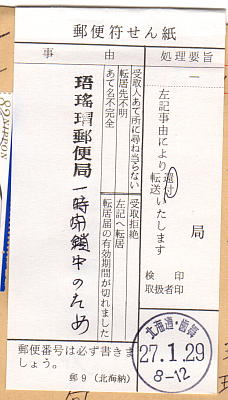 郵便符せん紙
処理要旨
事由
左記事由により
還付
転送
いたします
局
検印
取扱者印
受取人あて所に尋ね当らない
転居先不明
あて名不完全
受取拒絶
左記へ転居
転居届の有効期間が切れました
珸瑤瑁郵便局一時閉鎖中のため
郵便番号は必ず書きま
しょう。
郵9(北海納)
北海道・歯舞
27.1.29
8-12
82 NIPPON